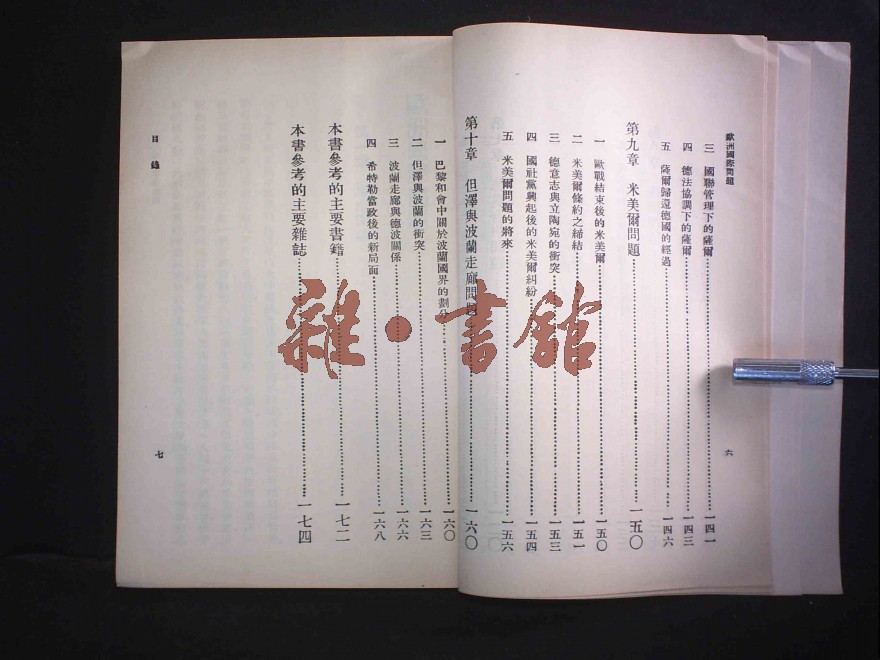 歐洲國際問題
三　國聯管理下的薩爾……一四一
四　德法協調下的薩爾……一四三
五　薩爾歸還德國的經過……一四六
第九章　米美爾問題……一五〇
一　歐戰結束後的米美爾……一五〇
二　米美爾條約之締結……一五一
三　德意志與立陶宛的衝突……一五三
四　國社黨興起後的米美爾糾紛……一五四
五　米美爾問題的將來……一五六
六
第十章　但澤與波蘭走廊問題……一六〇
一　巴黎和會中關於波蘭國界的劃分……一六〇
二　但澤與波蘭的衝突……一六三
三　波蘭走廊與德波關係……一六六
四　希特勒當政後的新局面……一六八
本書參考的主要書籍……一七二
本書參考的主要雜誌……一七四
目錄
七
雜·書館